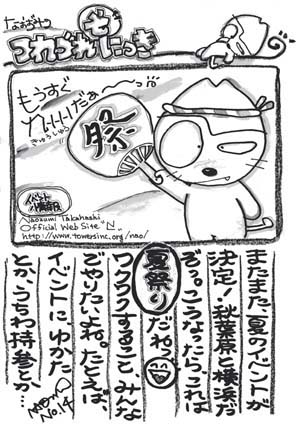 なおずみの
つれづれ もにっき
もうすぐ
だぁ〜っ!!
祭
イベント
Naozumi Takahashi
Official Web Site "N"
http://www.towersinc.org/nao/
またまた、夏のイベントが
決定!秋葉原と横浜だ
ぞっ。こうなったら、これは
夏祭りだねっ
ワクワクすること、みんな
でやりたいよね。たとえば、
イベントにゆかた
とか、うちわ持参とか…
NAOZUMI
No.14